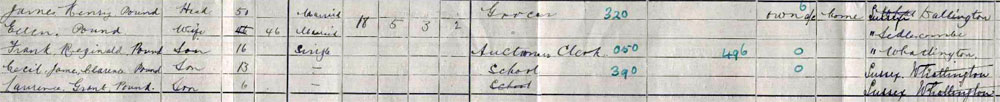 James Henry Pound Head 51 Married 18 5 3 2 Grocer 320 own a/c 6 home Sussex Dallington
Ellen, Pound Wife 46 Married " Sedlescombe
Frank Reginald Pound Son 16 Single Auctioneers Clerk 050 496 0 " Whatlington
Cecil James Clarence Pound Son 13 — School 390 0 Sussex Whatlington
Laurence Grant Pound. Son 6 — School Sussex Whatlington